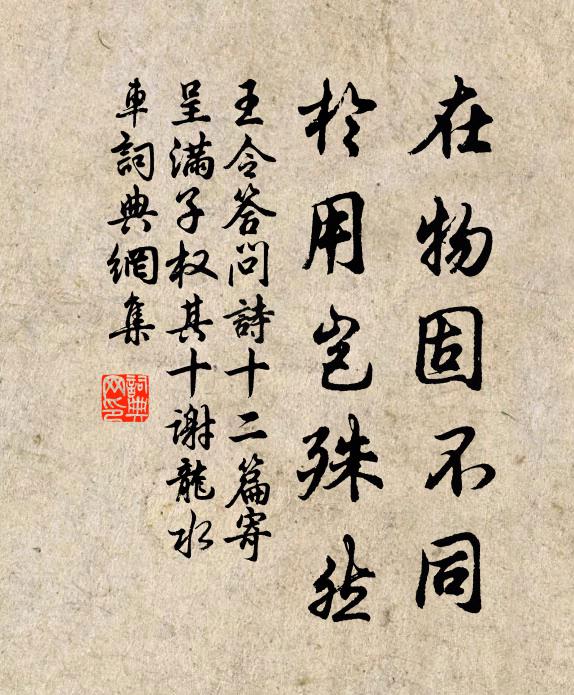 在物固不同
於用岂殊然
王令答問詩十二篇寄
呈滿子权其十謝龍水
車詞典網集
詞典
网印